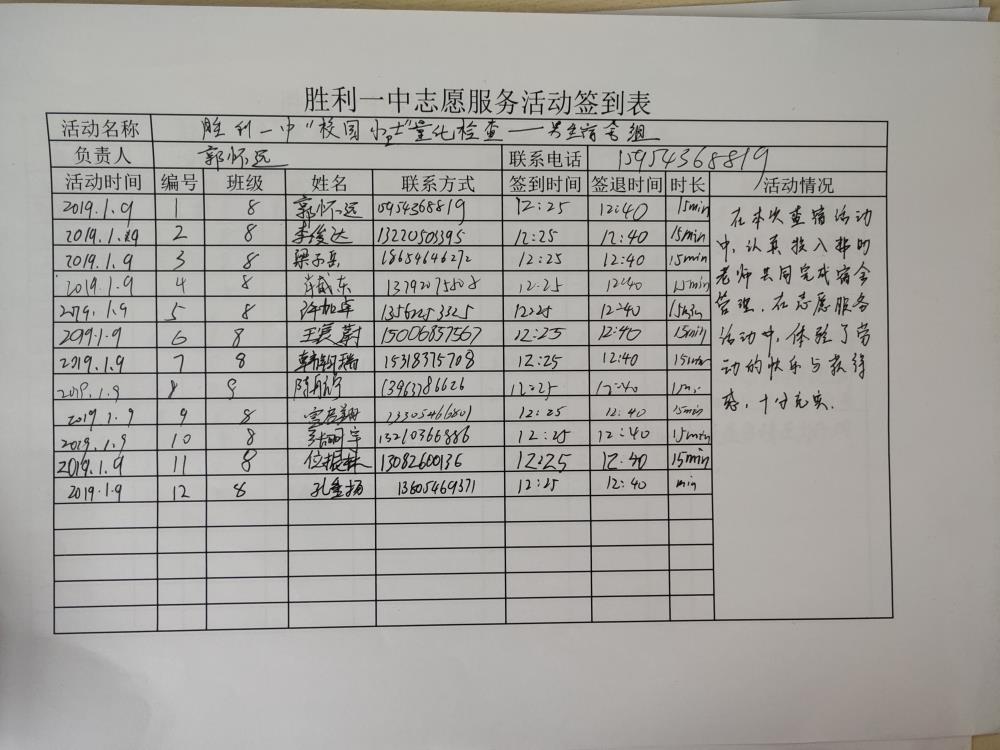 胜利一中志愿服务活动签到表
活动名称 胜利一中"校园卫士"量化检查——男生宿舍组
负责人 郭怀远 联系电话 15954368819
活动时间 编号 班级 姓名 联系方式 签到时间 签退时间 时长 活动情况
2019.1.9 1 8 郭怀远 15954368819 12:25 12:40 15min
2019.1.9 2 8 李俊达 13220503395 12:25 12:40 15min
2019.1.9 3 8 梁子岳 18654646272 12:25 12:40 15min
2019.1.9 4 8 12:25 12:40 15min
2019.1.9 5 8 许加卓 13562253325 12:25 12:40 15min
2019.1.9 6 8 15006857567 12:25 12:40 15min
2019.1.9 7 8 15318375708 12:25 12:40 15min
2019.1.9 8 13963786626 12:25 12:40
2019.1.9 9 8 13305466801 12:25 12:40 15min
2019.1.9 10 8 13210366886 12:25 12:40 15min
2019.1.9 11 8 13082600136 12:25 12:40 15min
2019.1.9 12 8 孔垂扬 13605469371 12:25 12:40 min
在本次查宿活动
中,认真投入帮助
老师共同完成宿舍
管理.在志愿服务
活动中,体验了劳
动的快乐与获得
感,十分充实.